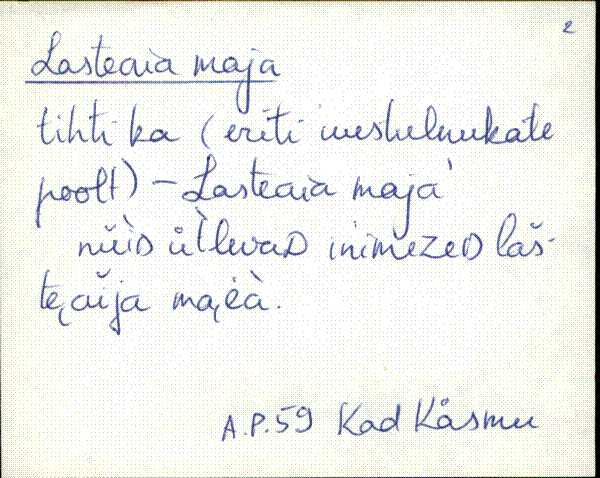 2
Lasteaia maja
tihti ka (eriti
poolt) – Lasteaia maja
nüiD ütlevaD inimezeD las̆-
te̬aija ma
A.P.59 Kad Kåsmu